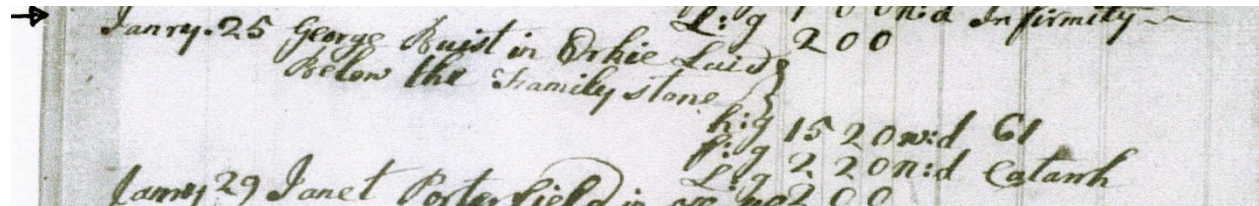 L:g 1 0 0 n:d Infirmity
Janry. 25 George Buist in Orkie Laid 2 0 0
Below the Family stone
h:g 15 2 0 w:d 61
f:g 2 2 0 n:d Catarrh
L:g 2 0 0
Janry 29 Janet Porterfield in